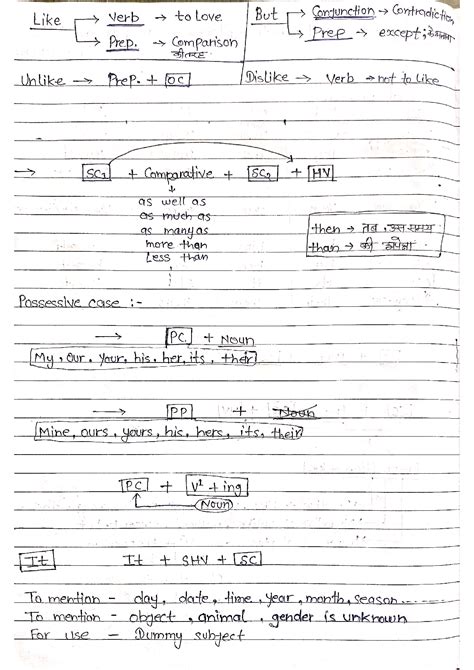 Like → Verb → to Love
→ Prep. → Comparison
की तरह
But → Conjunction → Contradiction
→ Prep → except; के अलावा
Unlike → Prep. + OC
Dislike → Verb → not to Like
→ SC1 + Comparative + SC2 + HV
as well as
as much as
as many as
more than
Less than
then → तब, उस समय
than → की अपेक्षा
Possessive case :-
→ PC + Noun
My, our, your, his, her, its, their
→ PP + Noun
Mine, ours, yours, his, hers, its, their
PC + V1 + ing
Noun
It It + SHV + SC
To mention - day, date, time, year, month, season.....
To mention - object, animal, gender is unknown
For use - Dummy subject